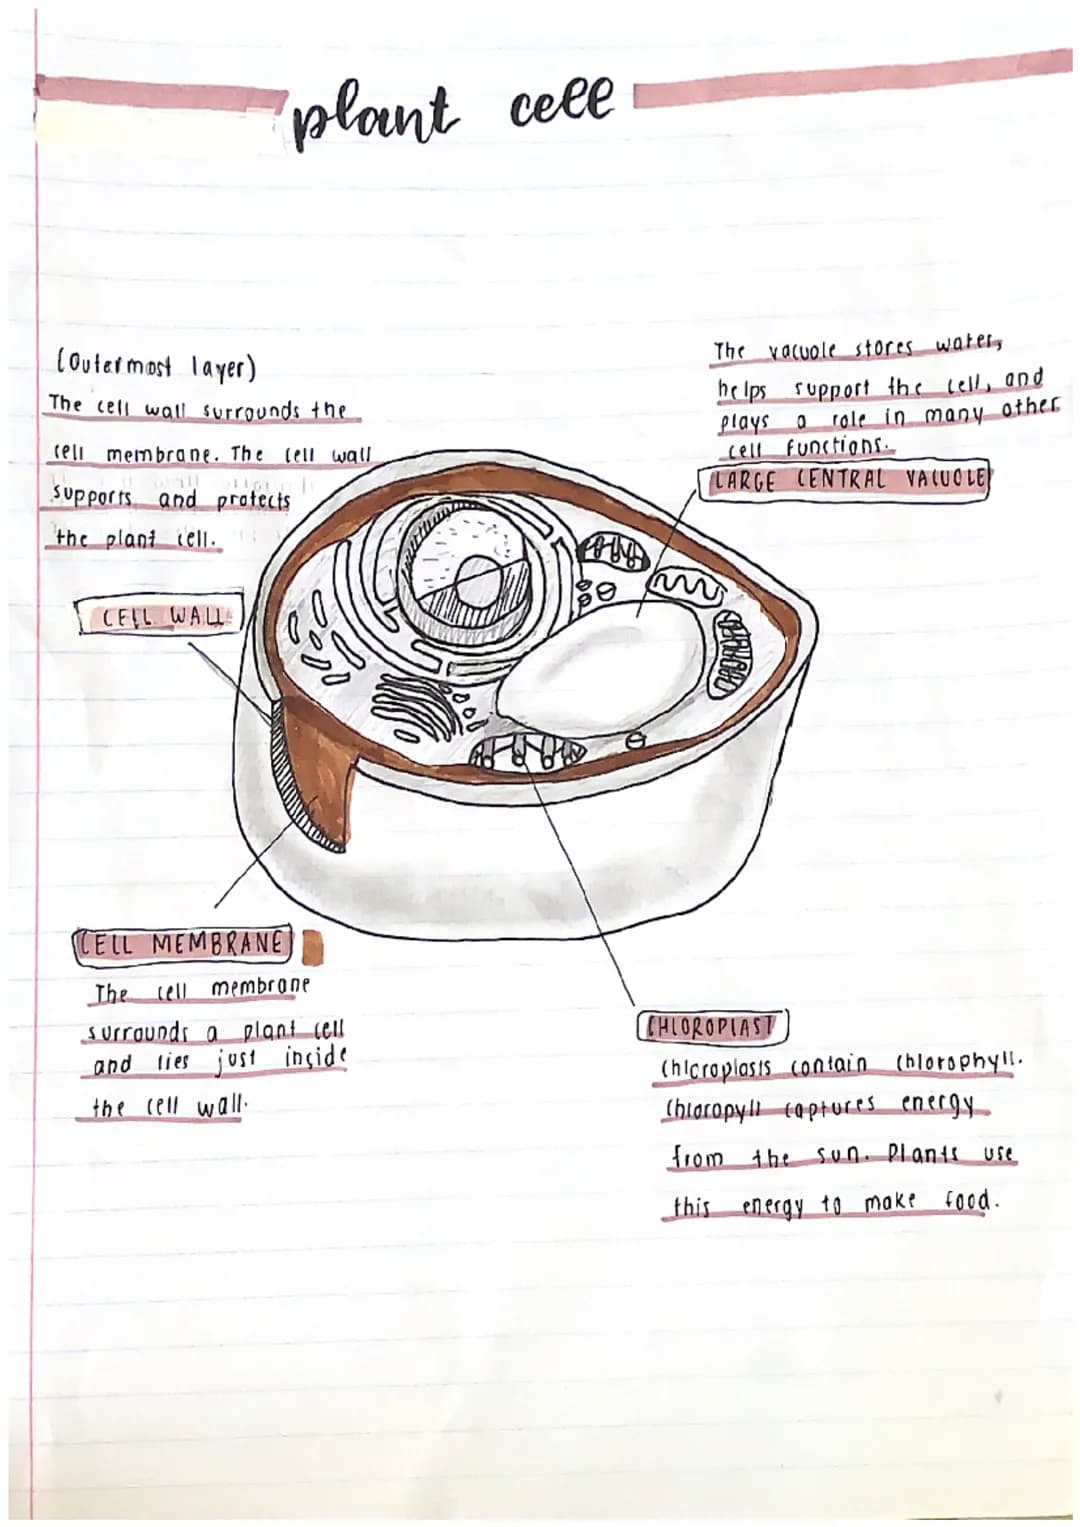 plant cell
(Outermost layer)
The cell wall surrounds the
cell membrane. The cell wall
supports and protects
the plant cell.
CELL WALL
The vacuole stores water,
helps support the cell, and
plays a role in many other
cell functions.
LARGE CENTRAL VACUOLE
CELL MEMBRANE
The cell membrane
surrounds a plant cell
and lies just inside
the cell wall.
CHLOROPLAST
Chloroplasts contain chlorophyll.
Chloropyll captures energy
from the sun. Plants use
this energy to make food.